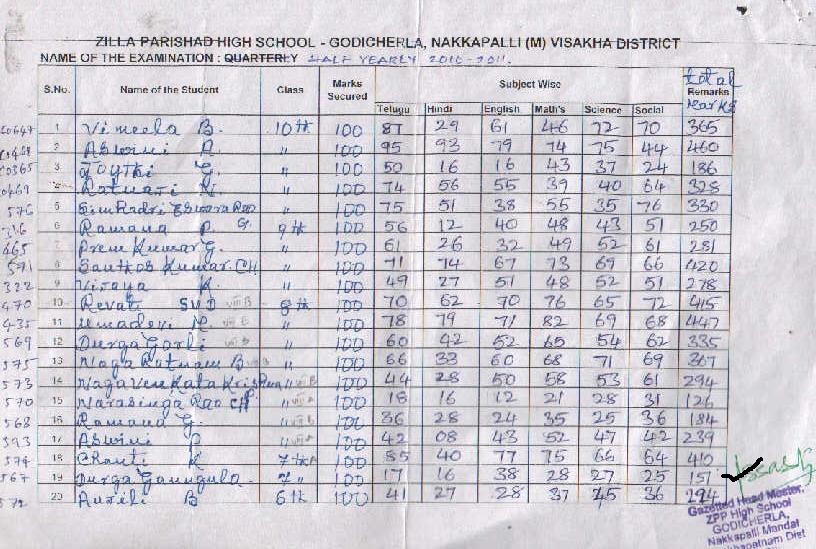 ZILLA PARISHAD HIGH SCHOOL - GODICHERLA, NAKKAPALLI (M) VISAKHA DISTRICT
NAME OF THE EXAMINATION : QUARTERLY HALF YEARLY 2010-2011.
S.No. Name of the Student Class Marks Secured Subject Wise total Remarks Marks
Telugu Hindi English Math's Science Social
1 Vimeela B. 10th 100 87 29 61 46 72 70 365
2 Aswini P. " 100 95 93 79 74 75 44 460
0365 3 Joythi G. " 100 50 16 16 43 37 24 186
0469 Ratnari K. " 100 74 56 55 39 40 64 328
576 5 Simhadri Eswara Rao " 100 75 51 38 55 35 76 330
316 6 Ramana P. G. 9th 100 56 12 40 48 43 51 250
465 7 Prem Kumar G. " 100 61 26 32 49 52 61 281
591 8 Santhos Kumar. CH " 100 71 74 67 73 69 66 420
322 9 Vijaya K. " 100 49 27 51 48 52 51 278
470 10 Revati SVD VIII B 8th 100 70 62 70 76 65 72 415
435 11 Umadevi M. VIII B " 100 78 79 71 82 69 68 447
569 12 Durga Gorli VIII B " 100 60 42 52 65 54 62 335
575 13 Naga Ratnam B VIII B " 100 66 33 60 68 71 69 367
573 14 Naga Venkata Krishna " VIII B 100 44 28 50 58 53 61 294
570 15 Narasinga Rao CH " VIII A 100 18 16 12 21 28 31 126
568 16 Ramana G. " VIII B 100 36 28 24 35 25 36 184
593 17 Aswini P " VIII A 100 42 08 43 52 47 42 239
574 18 Chanti K 7th A 100 85 40 77 75 66 64 410
567 19 Durga Gaungula 7 " 100 17 16 38 28 27 25 151
572 20 Aurili B 6th 100 41 27 28 37 45 36
Gazetted Head Master,
ZPP High School
GODICHERLA,
Nakkapalli Mandal
khapatnam Dist